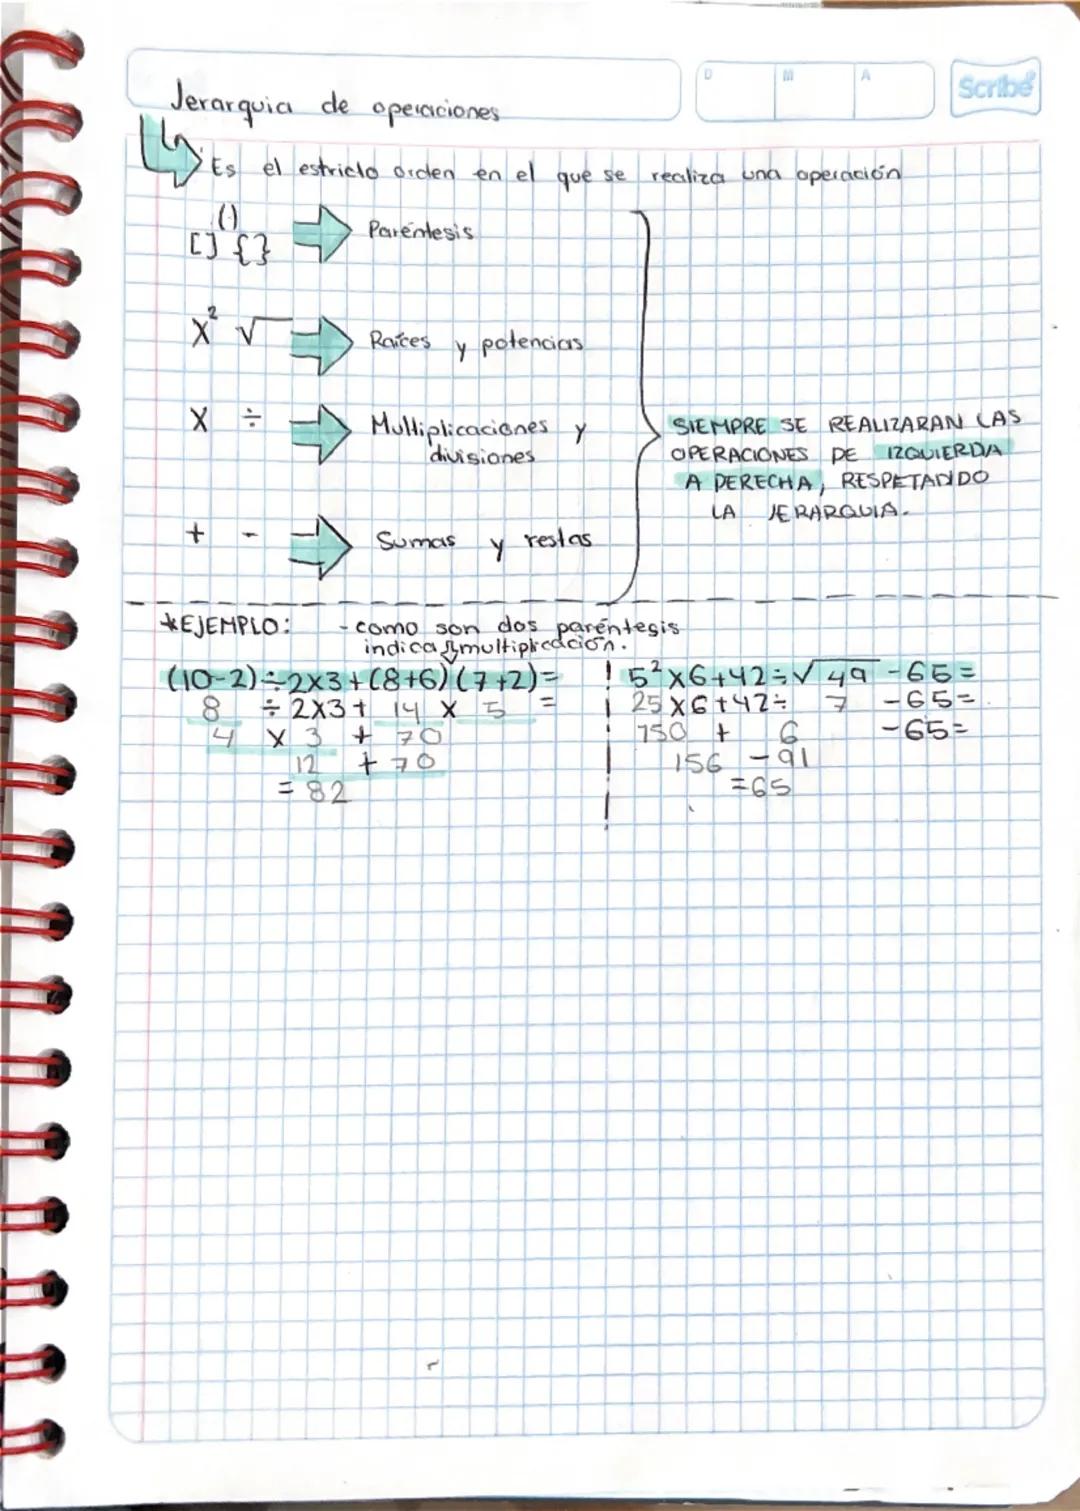 D M A Scribe
Jerarquia de operaciones
Es el estricto orden en el que se realiza una operación
()
[] {} Paréntesis
X² √ Raíces y potencias
X ÷ Multiplicaciones y
divisiones
+ - Sumas y restas
SIEMPRE SE REALIZARAN LAS
OPERACIONES DE IZQUIERDA
A DERECHA, RESPETANDO
LA JERARQUIA.
*EJEMPLO: - como son dos paréntesis
indica multiplicación.
(10-2)÷2x3+(8+6)(7+2)=
8 ÷ 2x3+ 14 x 5 =
4 x 3 + 70
12 + 70
= 82
5²x6+42÷√49 -65=
25x6+42÷ 7 -65=
150 + 6 -65=
156 -91
=65